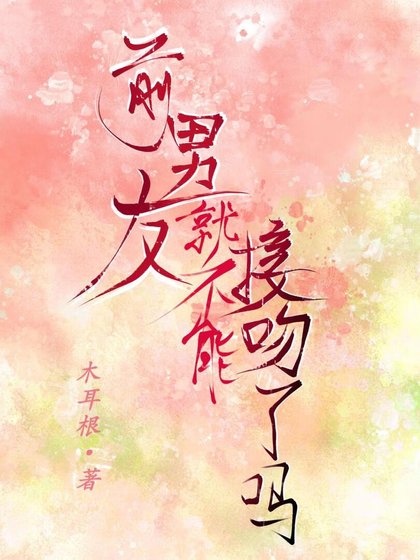 前男友
就不能
接吻了吗
木耳根·著